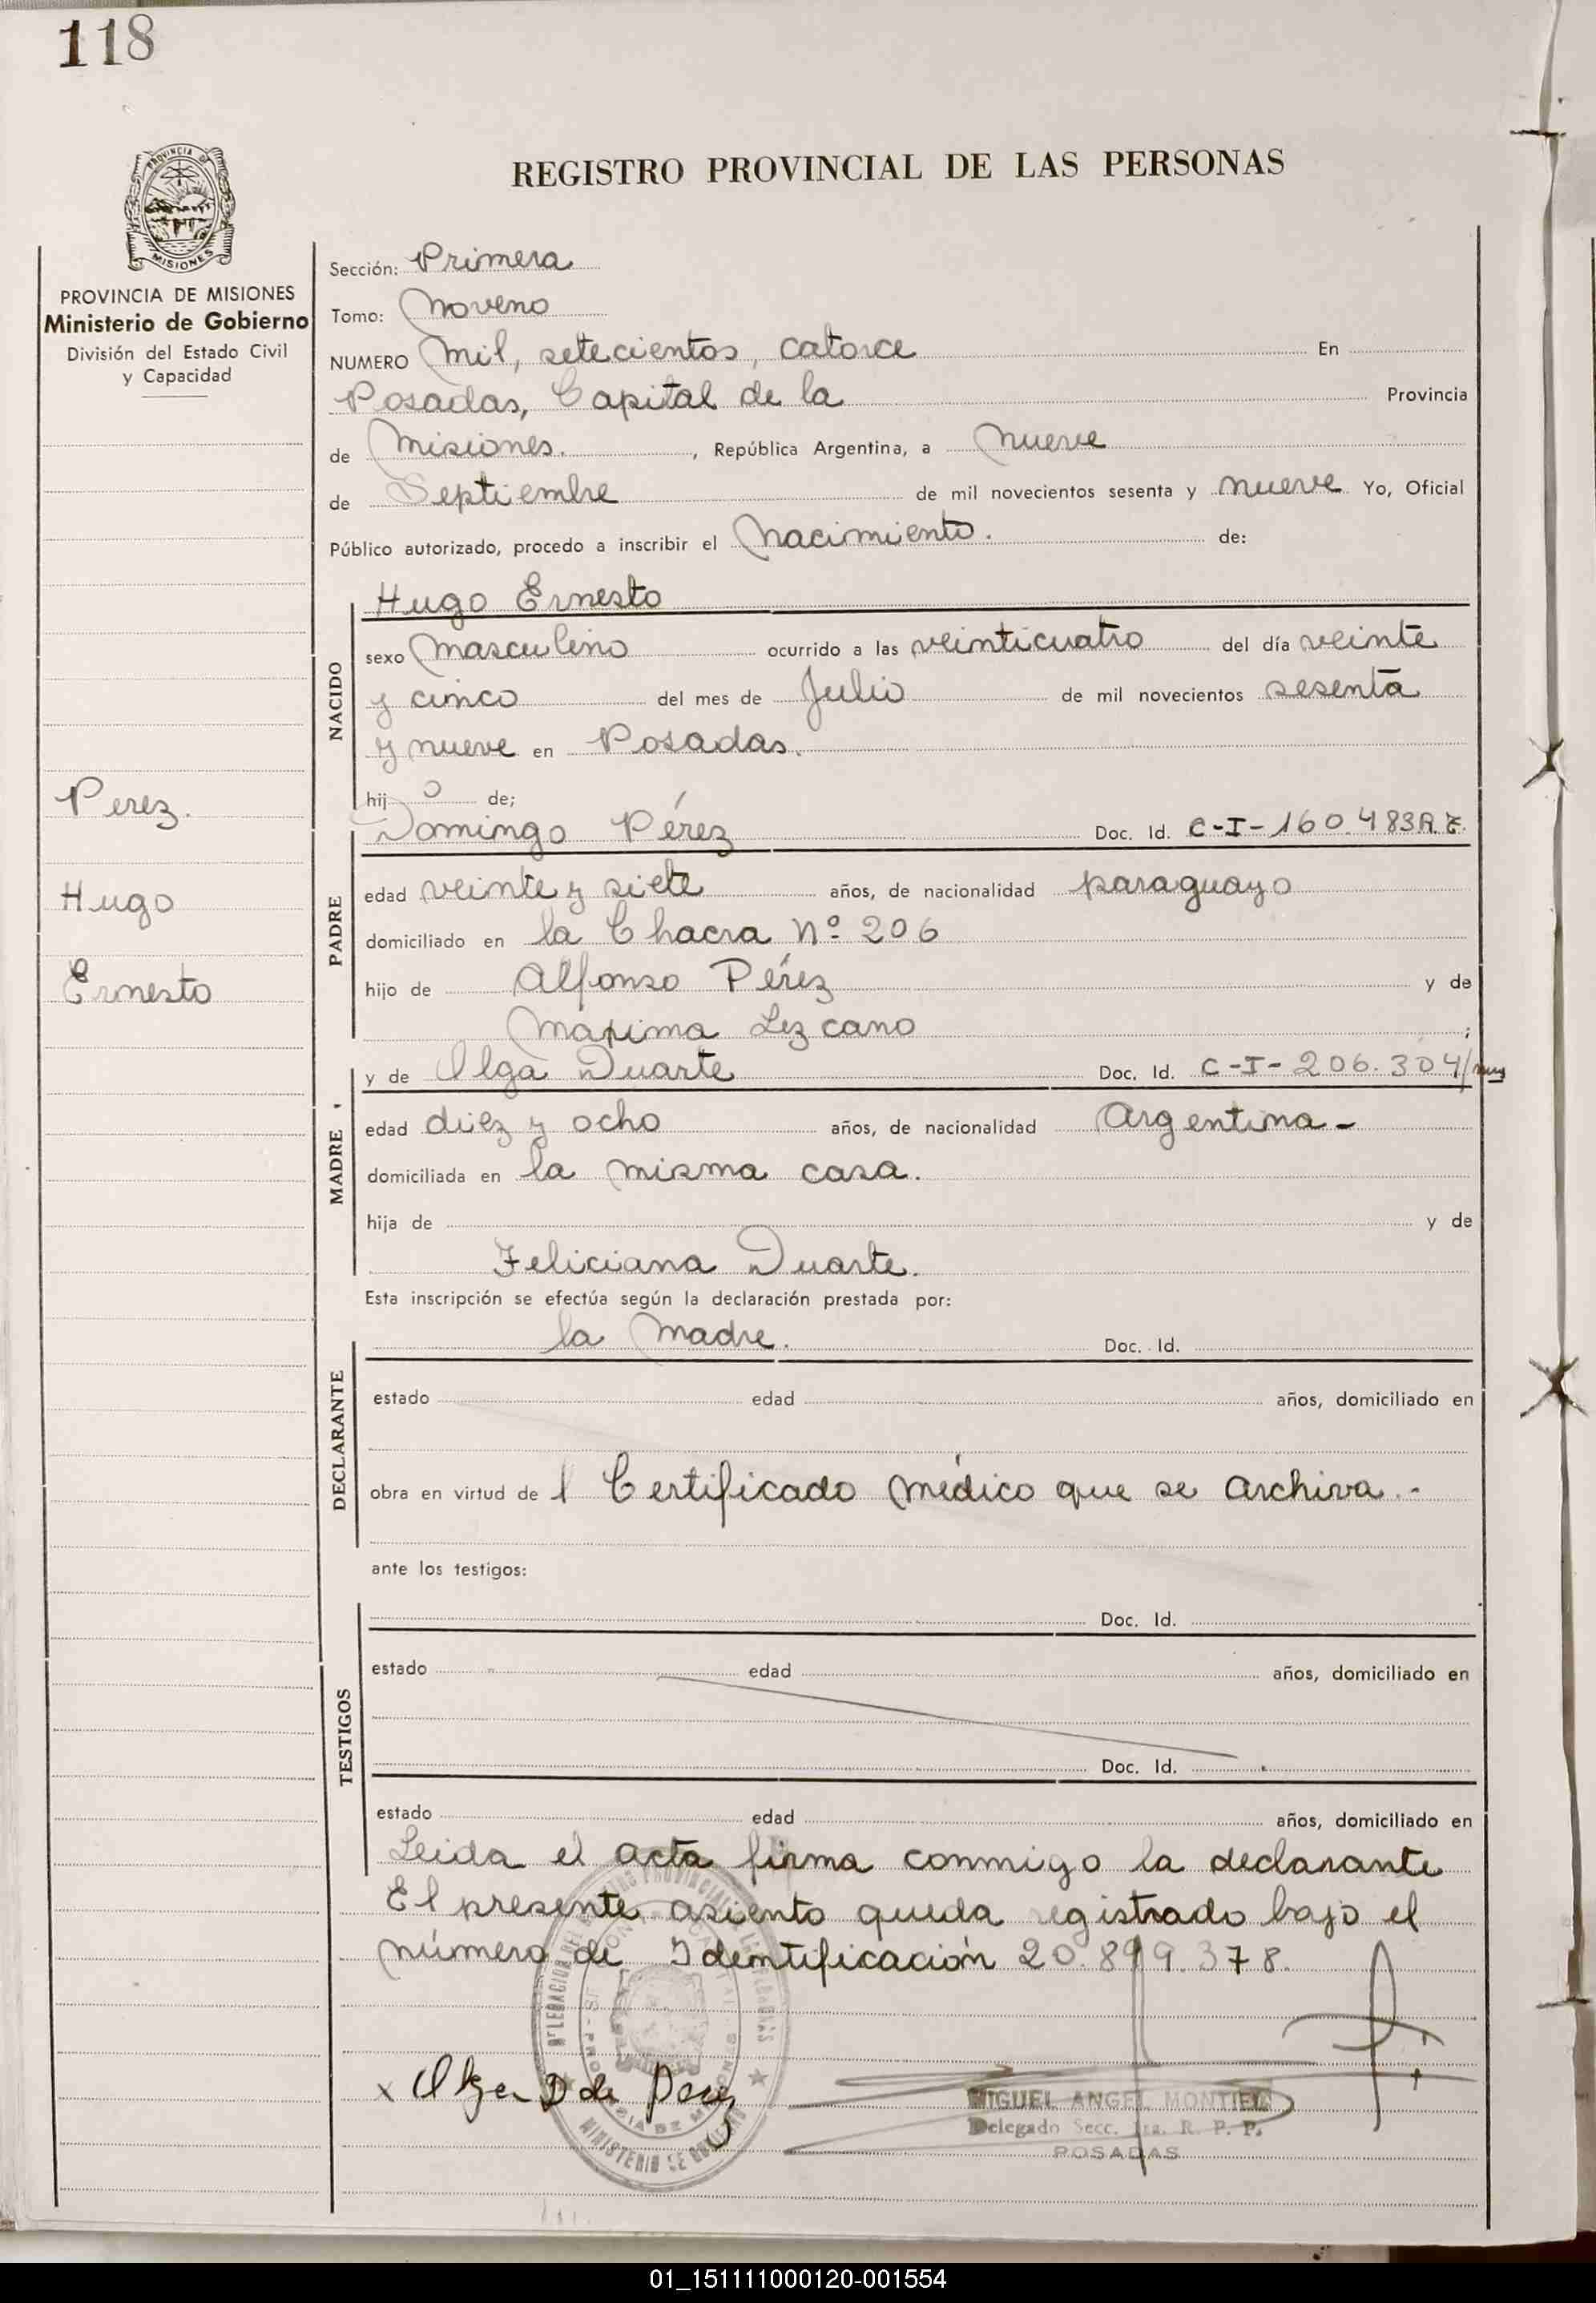 118
PROVINCIA DE
MISIONES
PROVINCIA DE MISIONES
Ministerio de Gobierno
División del Estado Civil
y Capacidad
Perez.
Hugo
Ernesto
REGISTRO PROVINCIAL DE LAS PERSONAS
Sección: Primera
Tomo: Noveno
NUMERO Mil, setecientos, catorce En
Posadas, Capital de la Provincia
de Misiones. , República Argentina, a nueve
de Septiembre de mil novecientos sesenta y nueve Yo, Oficial
Público autorizado, procedo a inscribir el Nacimiento. de:
Hugo Ernesto
NACIDO
sexo masculino ocurrido a las veinticuatro del día veinte
y cinco del mes de Julio de mil novecientos sesenta
y nueve en Posadas.
hij o de;
Domingo Pérez Doc. Id. C-I-160.483
PADRE
edad veinte y siete años, de nacionalidad paraguayo
domiciliado en la Chacra Nº 206
hijo de Alfonso Pérez y de
Máxima Lezcano ;
y de Olga Duarte Doc. Id. C-I-206.304/
MADRE
edad diez y ocho años, de nacionalidad Argentina -
domiciliada en la misma casa.
hija de y de
Feliciana Duarte.
Esta inscripción se efectúa según la declaración prestada por:
la Madre. Doc. Id.
DECLARANTE
estado edad años, domiciliado en
obra en virtud de l Certificado médico que se archiva.-
ante los testigos:
Doc. Id.
TESTIGOS
estado edad años, domiciliado en
Doc. Id.
estado edad años, domiciliado en
Leida el acta firma conmigo la declarante
El presente asiento queda registrado bajo el
número de Identificación 20.899.378.
x Olga D de Perez
MINISTERIO DE GOBIERNO
MIGUEL ANGEL MONTIEL
Delegado Secc. 1ra. R. P. P.
POSADAS
01_151111000120-001554